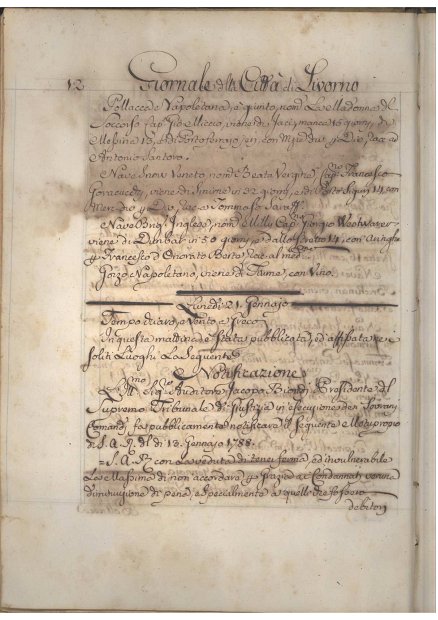 12 Giornale della Città di Livorno
Pollacca Napoletana, è giunto, nom. La Madonna del
Soccorso Cap. viene di Jaci, manca 16 giorni, di
Messina 10, e di Portoferrajo jeri, con e Vino, rac. a
Antonio Santoro.
Nave Snow Veneto, nom. Beata Vergine Cap.no Francesco
viene di Smirne in 32 giorni, e di 14 con
e rac. a Tommaso
Nave Inglese, nom. Cap.no Giorgio
viene di Dunbar in 50 giorni, e dallo Stretto 14, con Aringhe
a Francesco, e Onorato Berte rac. al med.mo
Napoletano, viene di Fiume, con Vino.
Lunedì 21. Gennajo
Tempo oscuro, e Vento a Sirocco
In questa mattina è stata pubblicata, ed affissata ne i
soliti Luoghi La Seguente
Notificazione
L'Ill.mo Sig.re Auditore Jacopo Biondi Presidente del
Supremo Tribunale di Giustizia in esecuzione dei Sovrani
Comandi, fa pubblicamente notificare il seguente Motuproprio
di S. A. R. del dì 13. Gennajo 1788.
S. A. R. con La veduta di tener ferma, ed invulnerabile
La Massima di non accordare per grazia ai Condannati veruna
diminuzione di pena, e specialmente a quelli che fossero
debitori